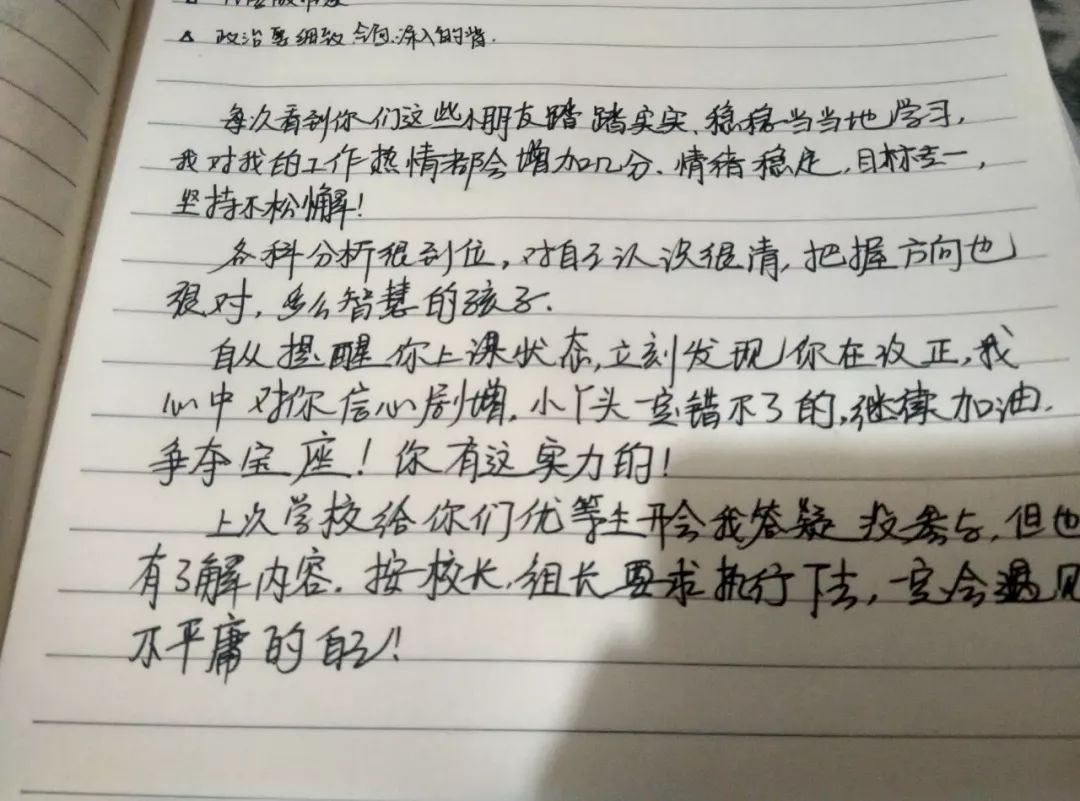 △ 政治要细致全面深入的背.
每次看到你们这些小朋友踏踏实实、稳稳当当地学习,
我对我的工作热情都会增加几分. 情绪稳定, 目标专一,
坚持不松懈!
各科分析很到位, 对自己认识很清, 把握方向也
很对, 多么智慧的孩子.
自从提醒你上课状态, 立刻发现你在改正, 我
心中对你信心剧增. 小丫头一定错不了的, 继续加油.
争夺宝座! 你有这实力的!
上次学校给你们优等生开会我答疑没参与, 但也
有了解内容. 按校长、组长要求执行下去, 一定会遇见
不平庸的自己!